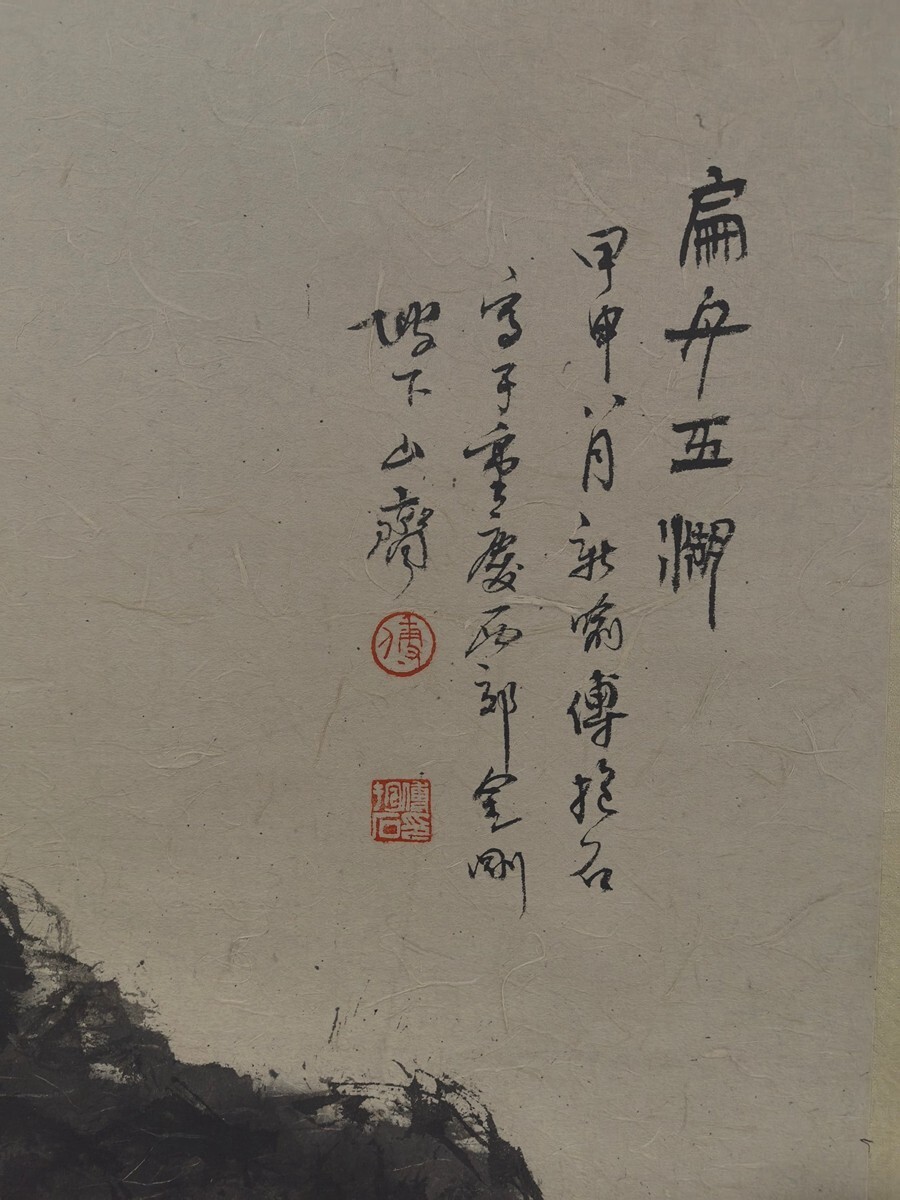 扁舟五湖
甲申八月新喻傅抱石
寫于重慶西郊金剛
坡下山齋
傅
傅抱石印